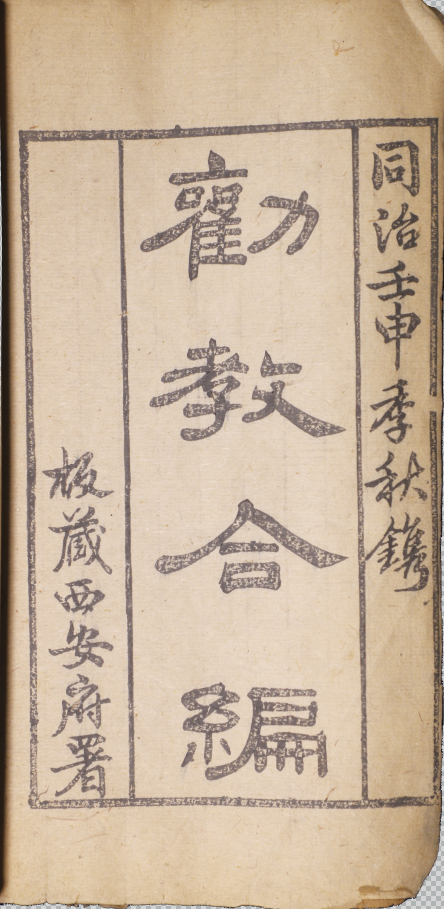 同治壬申季秋鐫
勸教合編
板藏西安府署